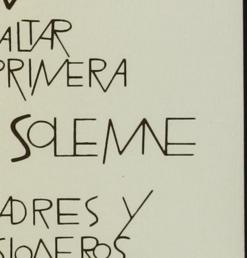 ALTAR
PRIMERA
SOLEMNE
ADRES Y
SIONEROS